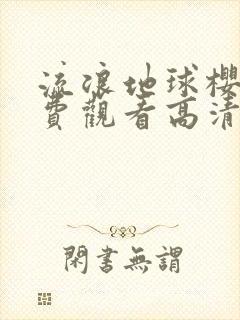 流浪地球櫻
費觀看高清
閑書無謂